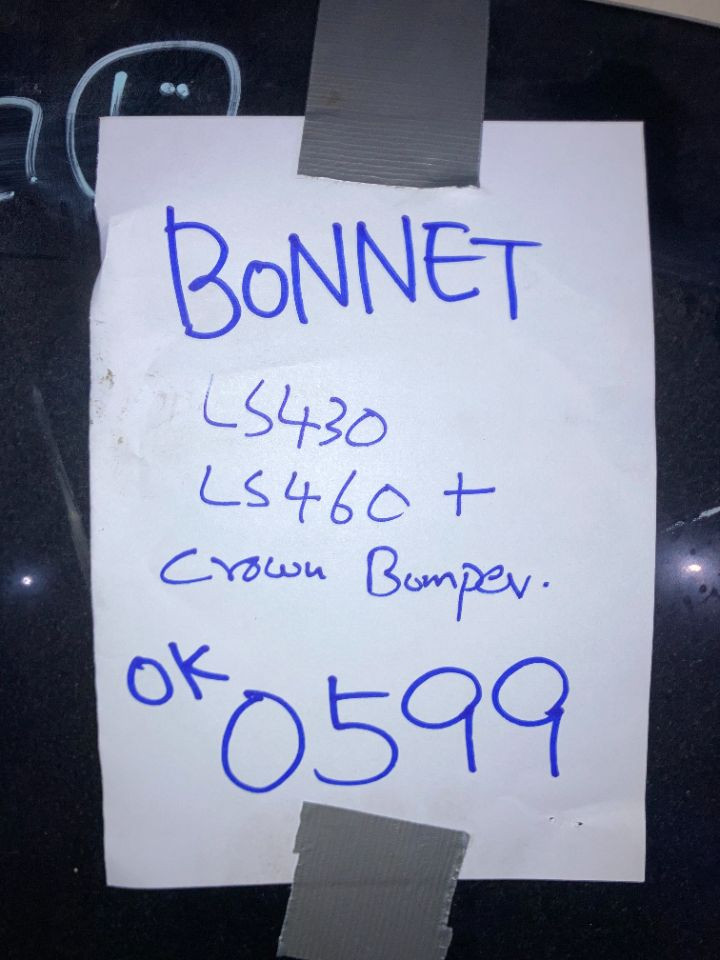 BONNET
LS430
LS460 +
Crown Bumper.
OK 0599